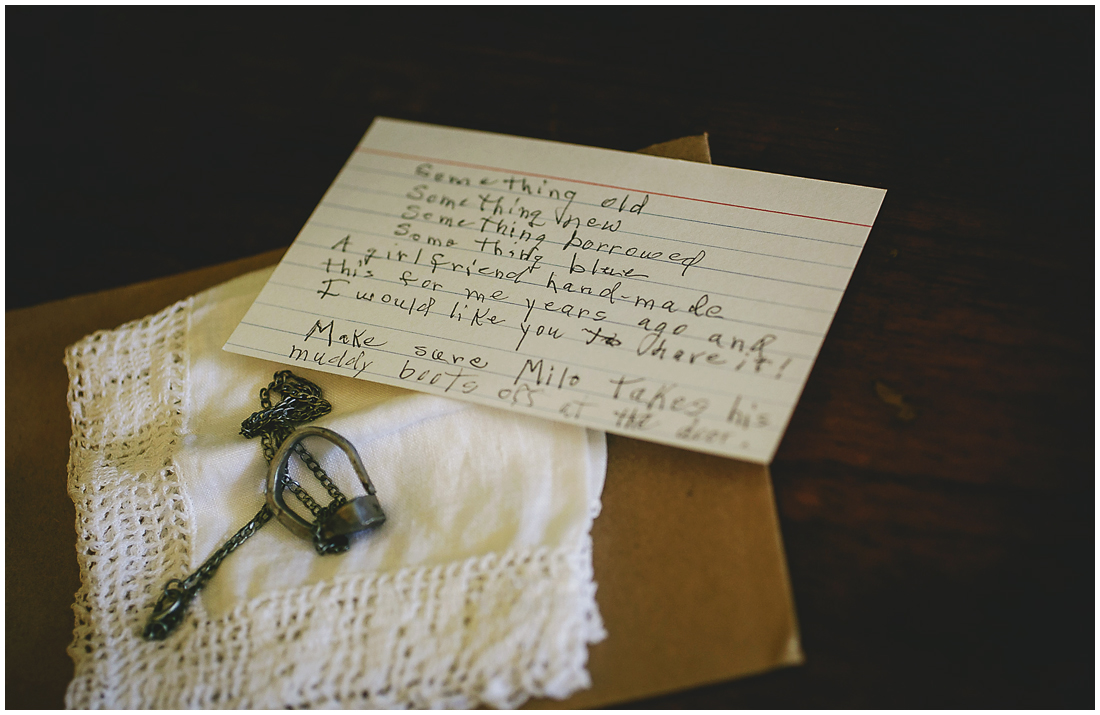 Something old
Something new
Something borrowed
Some thing blue
A girlfriend hand-made
this for me years ago and
I would like you to have it!
Make sure Milo takes his
muddy boots off at the door.